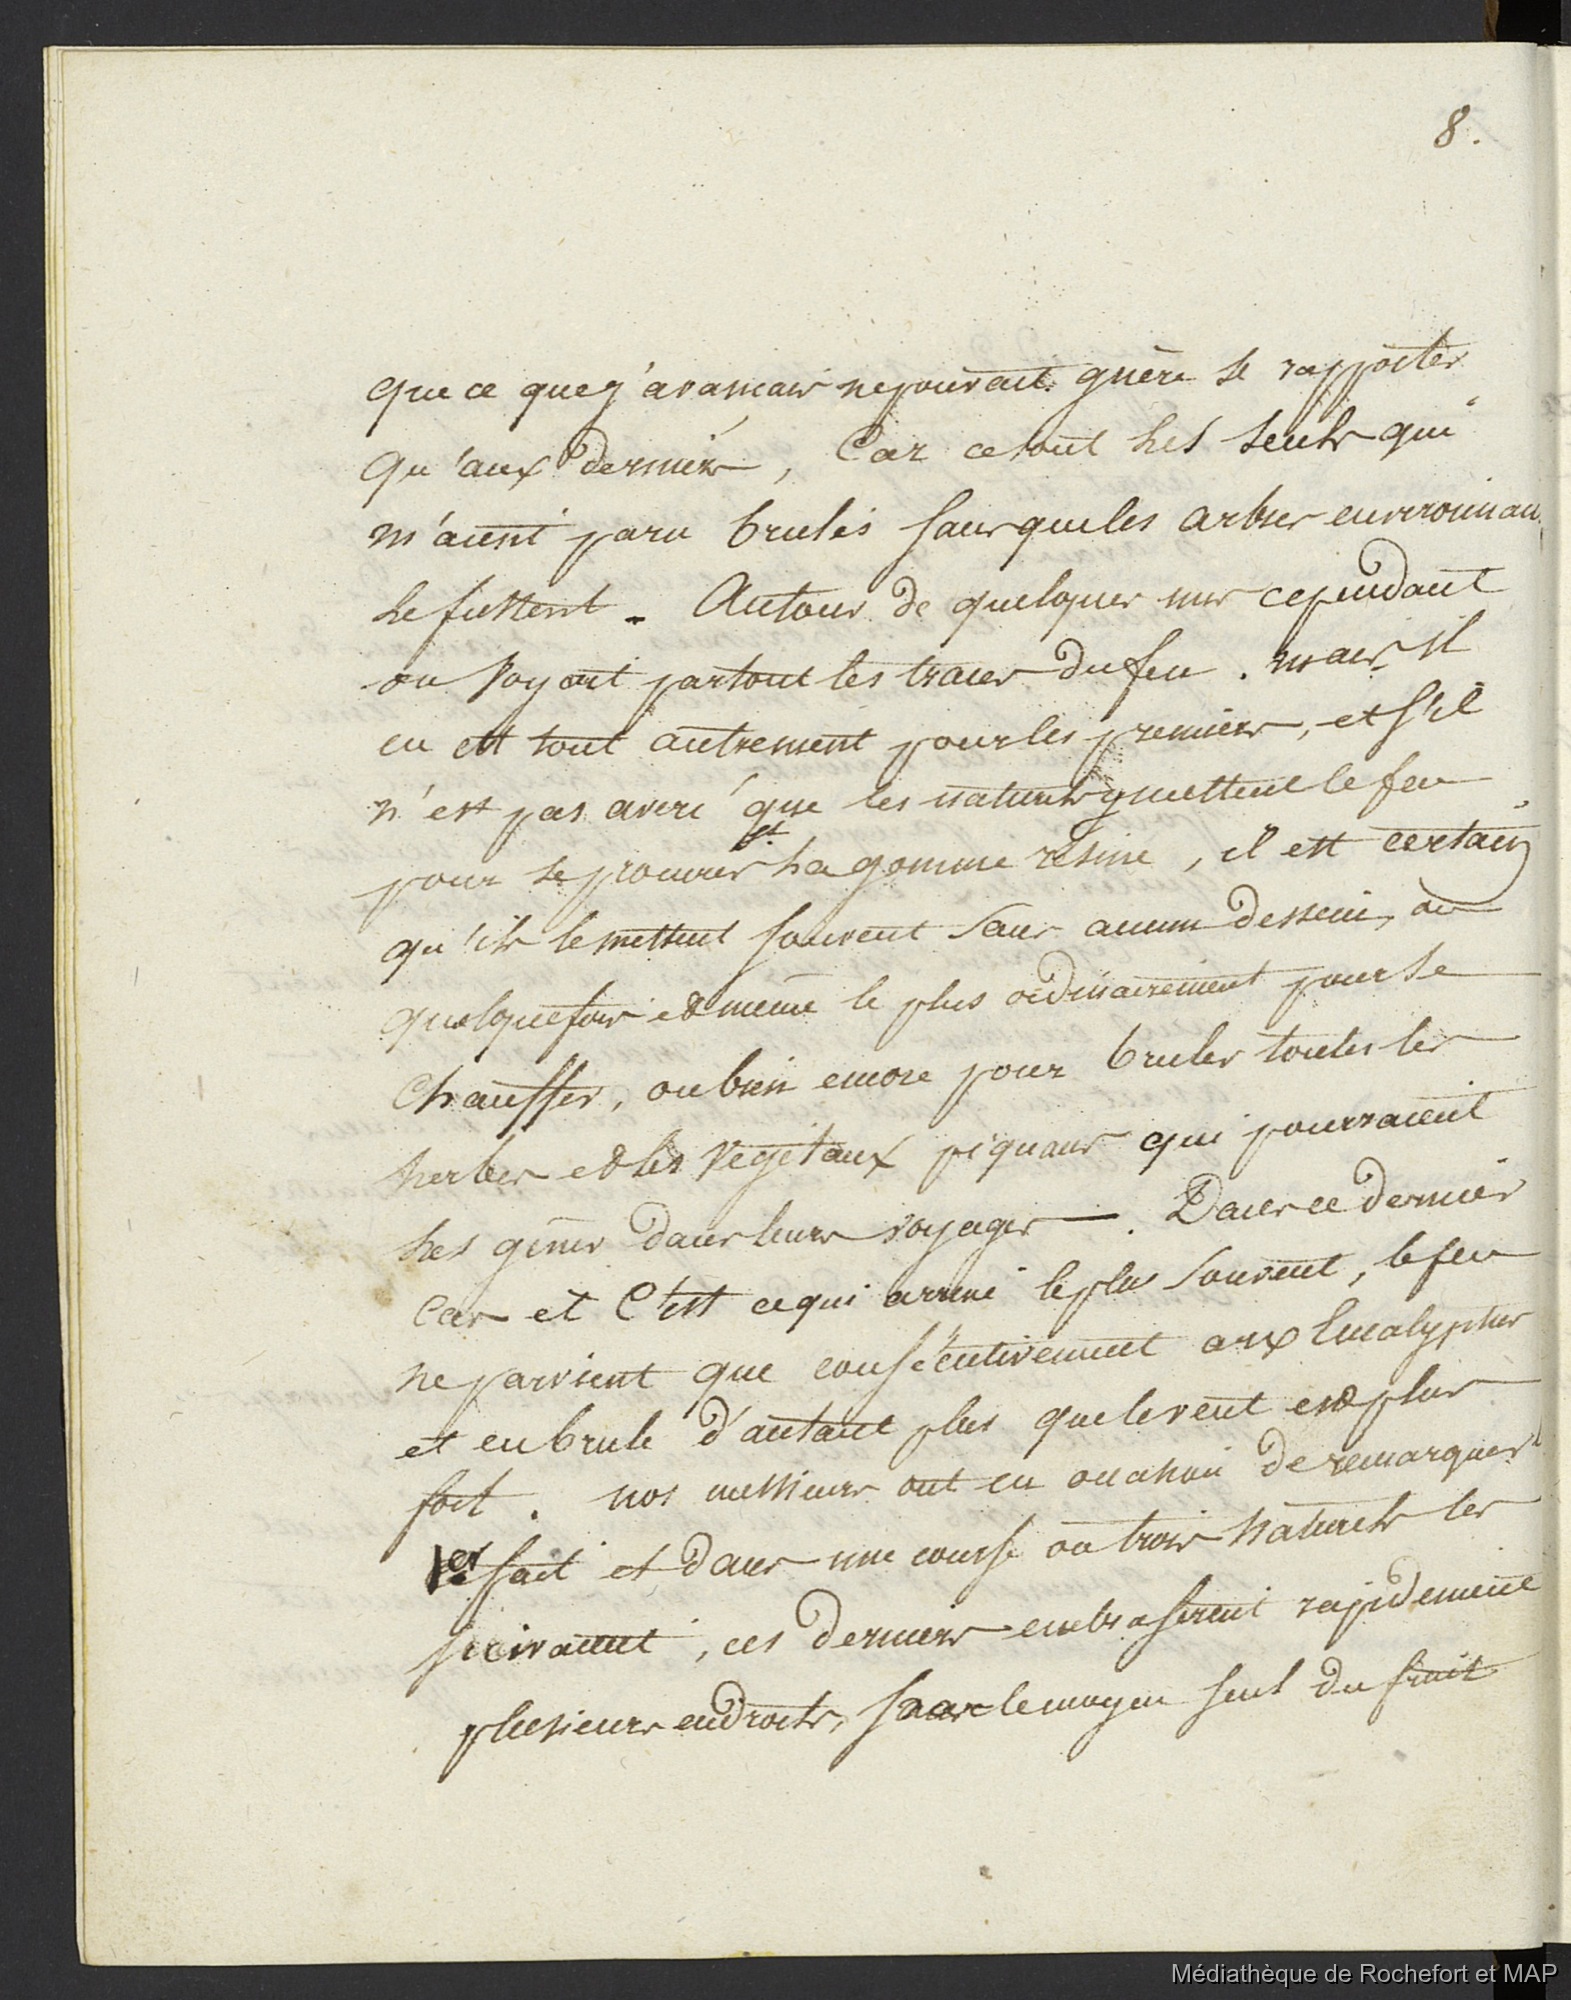 8.
que ce que j'avançais ne pouvait guère se rapporter
qu'aux derniers, Car ce sont les seuls qui
m'aient paru brulés sans que les arbres environnan
le fussent. Autour de quelques uns cependant
on voyait partout les traces du feu. mais il
en est tout autrement pour les premiers, et s'il
n'est pas averé que les naturels y mettent le feu
pour se procurer la gomme résine, il est certain
qu'ils le mettent souvent sans aucun dessein, ou
quelquefois et même le plus ordinairement pour se
Chauffer, ou bien encore pour bruler toutes les
herbes et les végétaux piquans qui pourraient
les gêner dans leurs voyages. Dans ce dernier
Cas et C'est ce qui arrive le plus souvent, le feu
ne parvient que consécutivement aux Eucalyptus
et en brule d'autant plus que le vent est plus
fort. nos messieurs ont eu occasion de remarquer
fait et dans une course où trois naturels les
suivaient, ces derniers embrasèrent rapidement
plusieurs endroits, par le moyen seul du fruit
Médiathèque de Rochefort et MAP